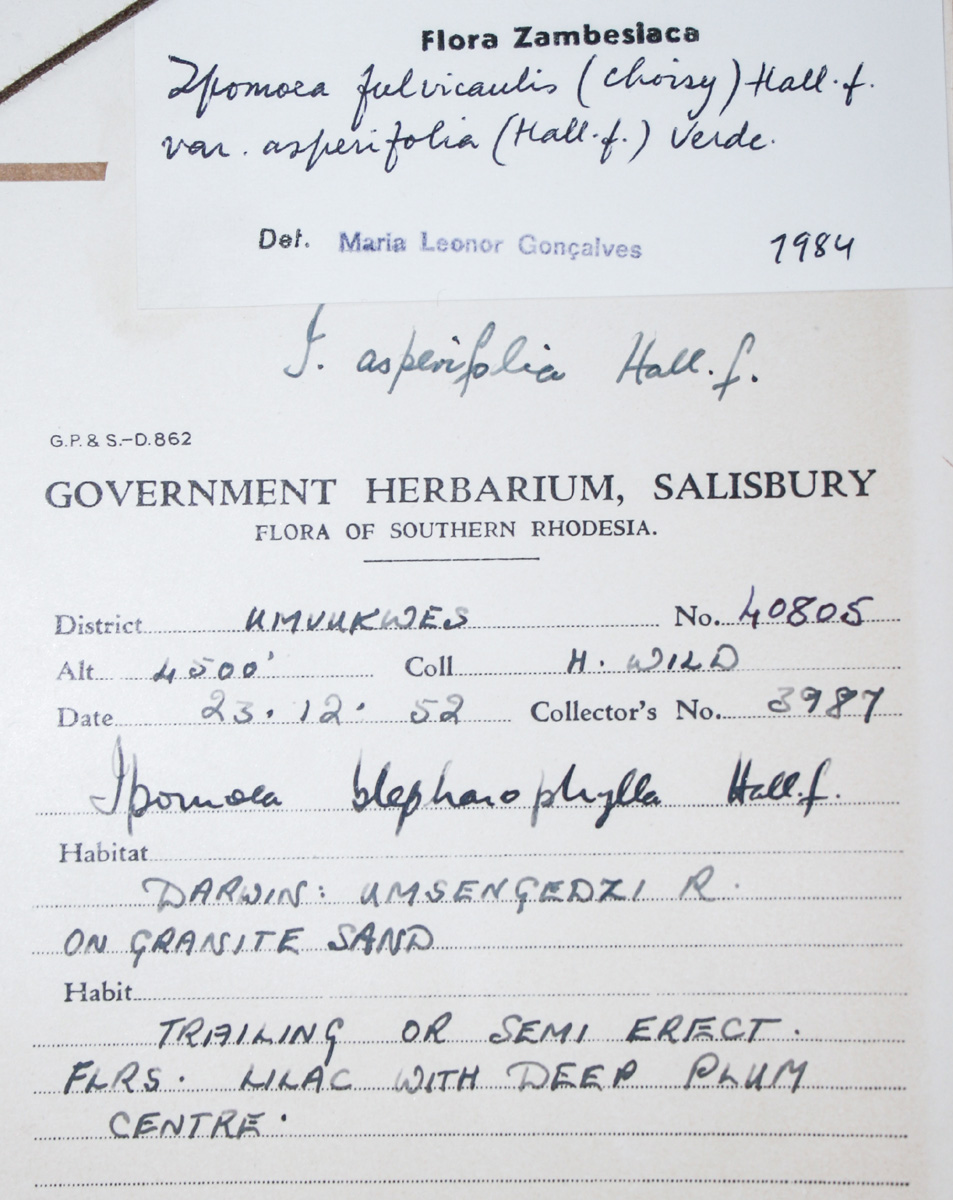 Flora Zambesiaca
Ipomoea fulvicaulis (Choisy) Hall.f.
var. asperifolia (Hall.f.) Verdc.
Det. Maria Leonor Gonçalves 1984
I. asperifolia Hall.f.
G.P. & S.–D.862
GOVERNMENT HERBARIUM, SALISBURY
FLORA OF SOUTHERN RHODESIA.
District UMVUKWES No. 40805
Alt 4500' Coll H. WILD
Date 23.12.52 Collector's No. 3987
Ipomoea blepharophylla Hall.f.
Habitat
DARWIN: UMSENGEDZI R.
ON GRANITE SAND
Habit
TRAILING OR SEMI ERECT.
FLRS. LILAC WITH DEEP PLUM
CENTRE.